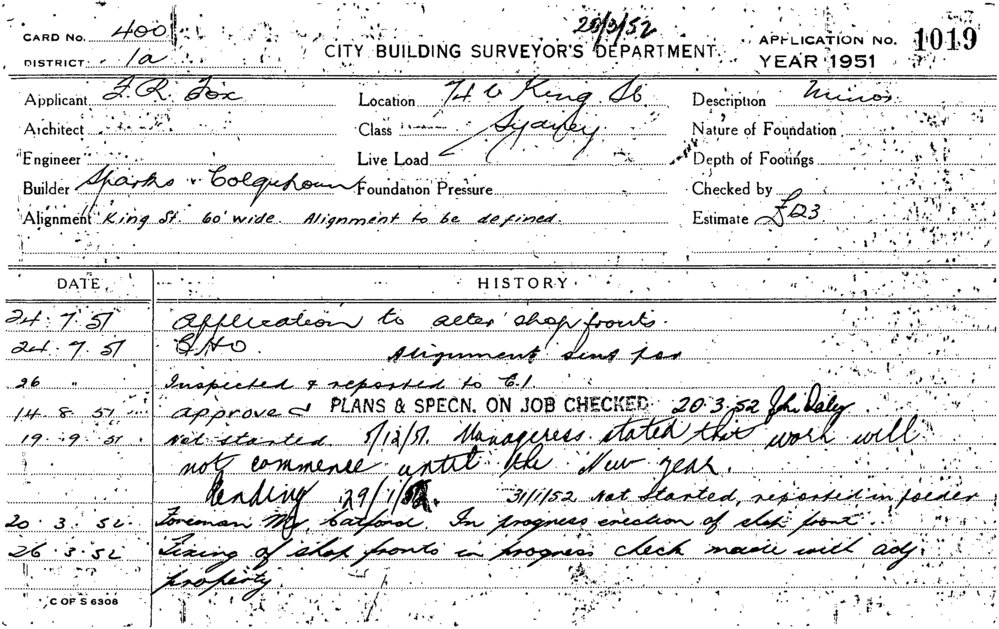 20/3/52
CARD No. 400 CITY BUILDING SURVEYOR'S DEPARTMENT. APPLICATION NO. 1019
DISTRICT 1a YEAR 1951
Applicant F. R. Fox Location King St Description Minor
Architect Class Sydney Nature of Foundation
Engineer Live Load Depth of Footings
Builder Sparks & Colquhoun Foundation Pressure Checked by
Alignment King St. 60' wide. Alignment to be defined. Estimate £123
DATE HISTORY
24.7.51 Application to alter shop fronts.
24.7.51 Alignment sent for
26 " Inspected & reported to C.I.
14.8.51 Approved PLANS & SPECN. ON JOB CHECKED 20.3.52 John Daley
19.9.51 Not started 5/12/51. Manageress stated that work will
not commence until the New year.
Pending 29/1/52. 31/1/52 Not Started, reported in folder
20.3.52 Foreman Mr Catford. In progress erection of shop front.
26.3.52 Fixing of shop fronts in progress check made with adj.
property.
C OF S 6308